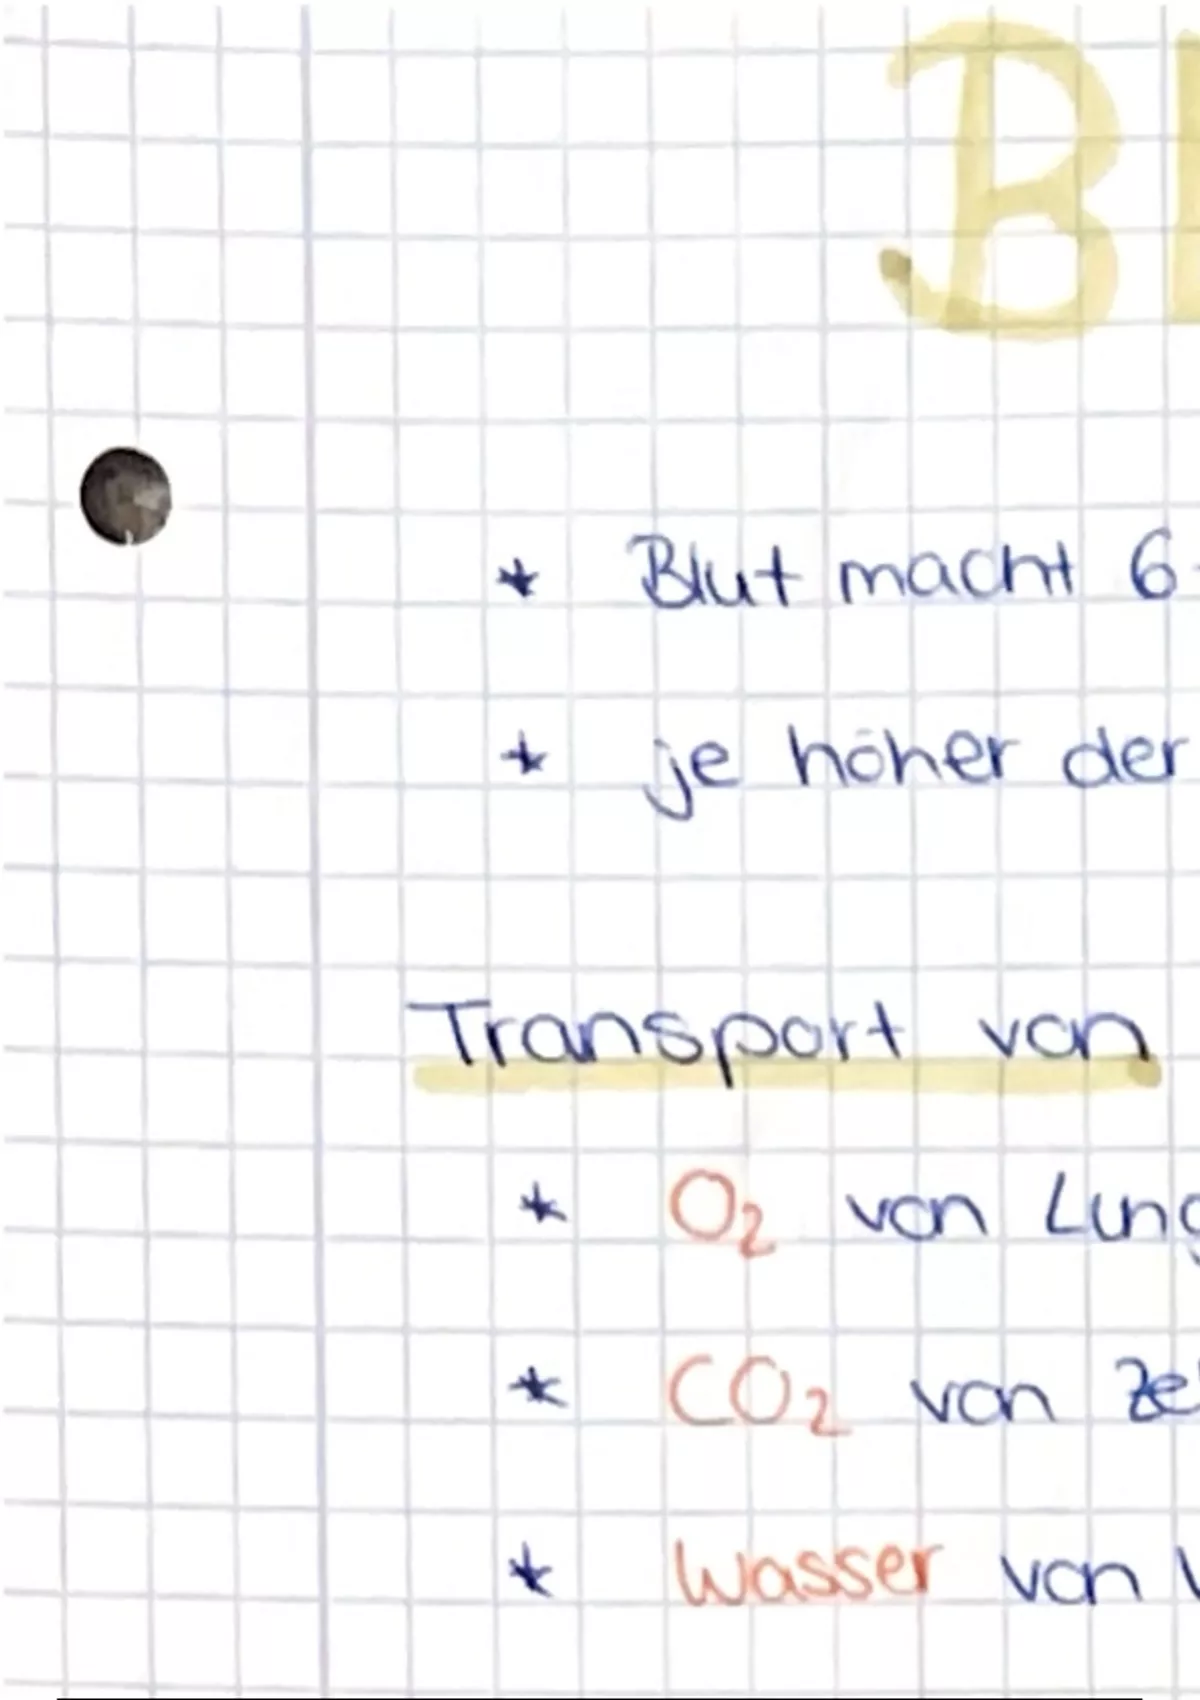 B
* Blut macht 6
* je höher der
Transport von
* O₂ von Lung
* CO₂ von Ze
* Wasser von